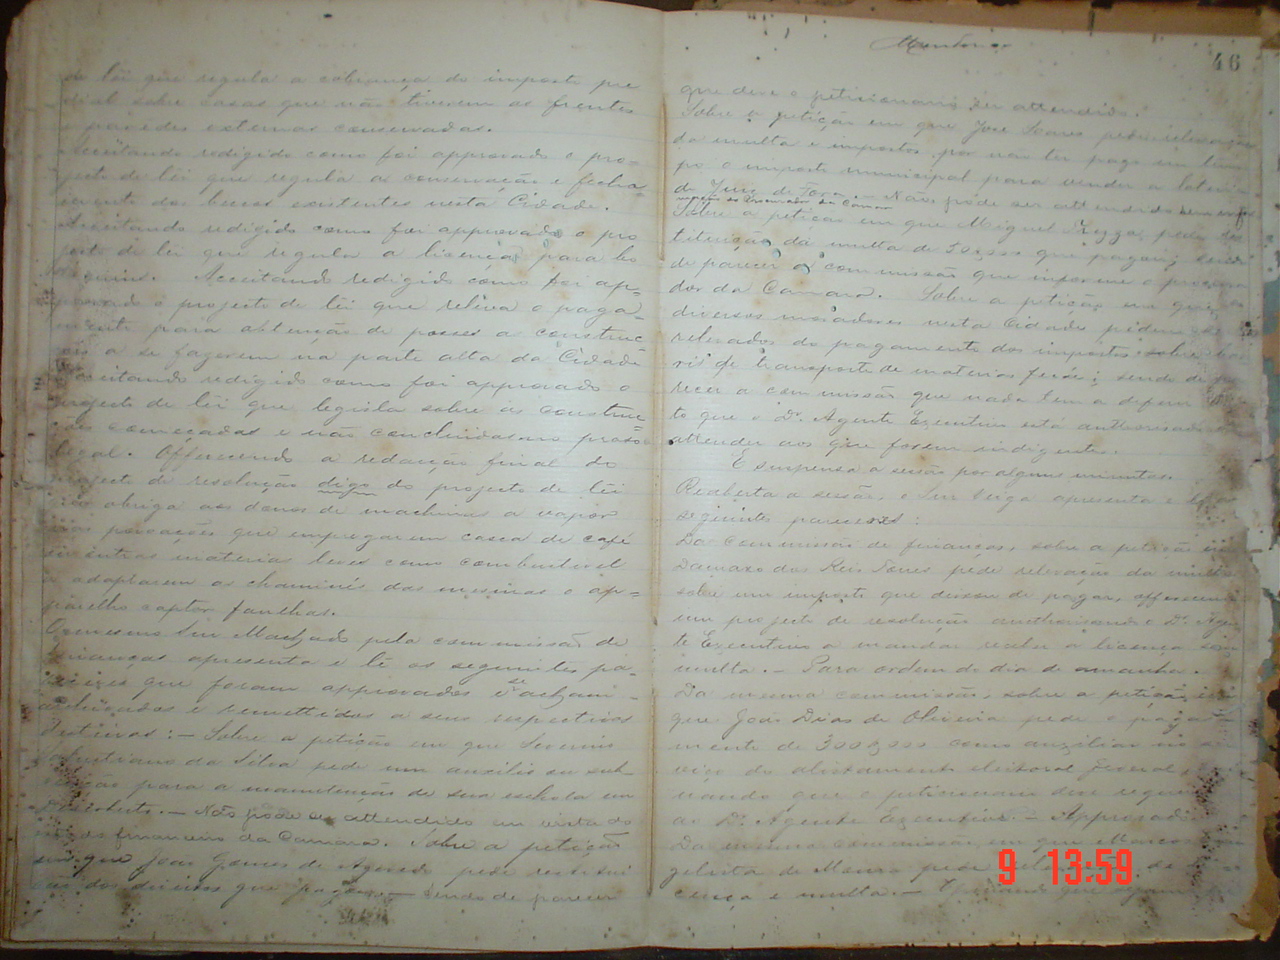 de lei que regula a cobrança do imposto pre
dial sobre casas que não tiverem as frentes
e paredes externas conservadas.
Acceitando redigido como foi approvado o pro=
jecto de lei que regula a conservação e fecha-
mento dos beccos existentes nesta Cidade.
Acceitando redigido como foi approvado o pro
jecto de lei que regula a licença para
Acceitando redigido como foi ap=
provado o projecto de lei que releva o paga-
mento para obtenção de posses a construc
a se fazerem na parte alta da Cidade
Acceitando redigido como foi approvado o
projecto de lei que legisla sobre as construc=
ções começadas e não concluidas no praso
legal. Offerecendo a redacção final do
projecto de resolução digo do projecto de lei
que obriga aos donos de machinas a vapor
nas povoações que empregarem casca de café
outras materias leves como combustivel
a adaptarem as chaminés das mesmas o ap=
parelho captor fanlhas.
O mesmo Snr Machado pela commissão de
finanças apresenta e lê os seguintes pa-
receres que foram approvados e se acham
e remettidos a seus respectivos
: – Sobre a petição em que Severino
da Silva pede um auxilio ou sub-
venção para a manutenção de sua eschola em
Descoberto. – Não póde ser attendido em vista do
estado financeiro da Camara. Sobre a petição
em que João Gomes de Azevedo pede restitui
ção dos direitos que pagou, – sendo de parecer
46
que deve o peticionario ser attendido.
Sobre a petição em que José Soares pede relevação
da multa e impostos, por não ter pago em tem
po o imposto municipal para vender a loteria
de Juiz de Fóra. – Não póde ser attendido
do Procurador da Camara
Sobre a petição em que Miguel pede res
tituição da multa de que pagou; sendo
de parecer a commissão que informe o procura
dor da Camara. Sobre a petição em que
diversos moradores nesta Cidade pedem ser
relevados do pagamento dos impostos sobre
de transporte de materias fecáes; sendo de pa
recer a commissão que nada tem a deferir
to que o Dr. Agente Executivo está authorisado a
attender aos que forem indigentes.
É suspensa a sessão por alguns minutos.
Reaberta a sessão, o Snr Veiga apresenta e lê os
seguintes pareceres:
Da commissão de finanças, sobre a petição em
Damaso dos Reis Torres pede relevação da multa
sobre um imposto que deixou de pagar, offerecendo
um projecto de resolução authorisando o Dr. Agen
te Executivo a mandar receber a licença sem
multa. – Para ordem do dia de amanha.
Da mesma commissão, sobre a petição em
que João Dias de Oliveira pede o paga
mento de 300$000 como auxiliar no ser
viço do alistamento eleitoral federal,
que o peticionario deve requerer
ao Dr. Agente Executivo. – Approvado.
Da mesma commissão, em que Marcos
de Moura pede de
cença e multa. –
9 13:59